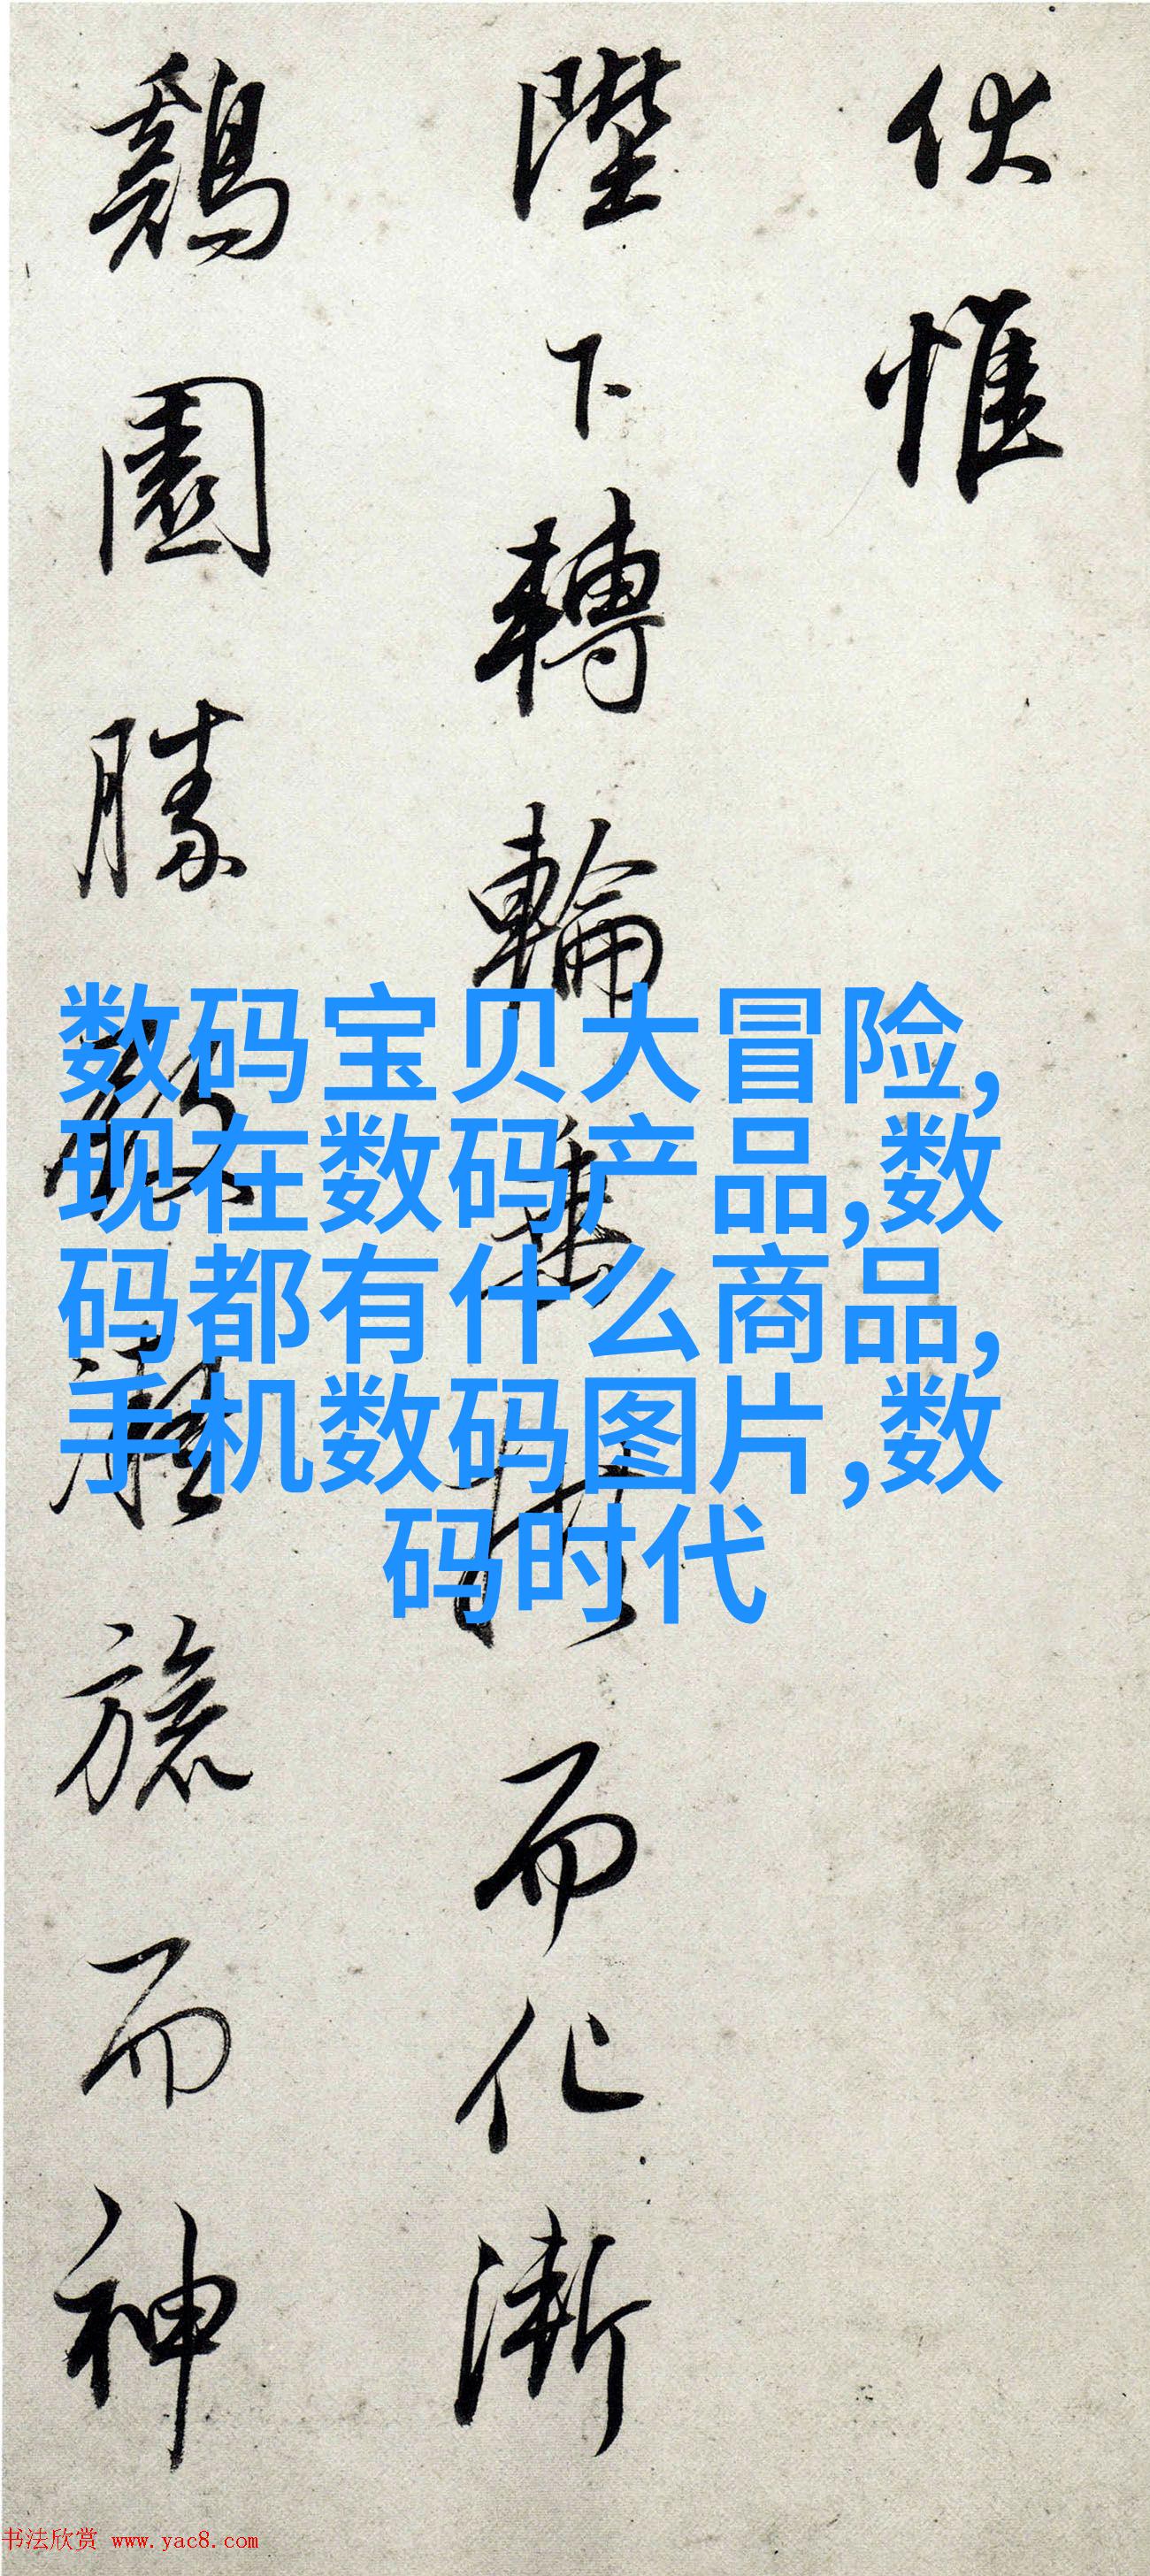 伏惟
陛下轉輪垂拱而化漸
鷄園勝殿凝旒而神
数码宝贝大冒险,
现在数码产品,数
码都有什么商品,
手机数码图片,数
码时代
书法欣赏 www.yac8.com